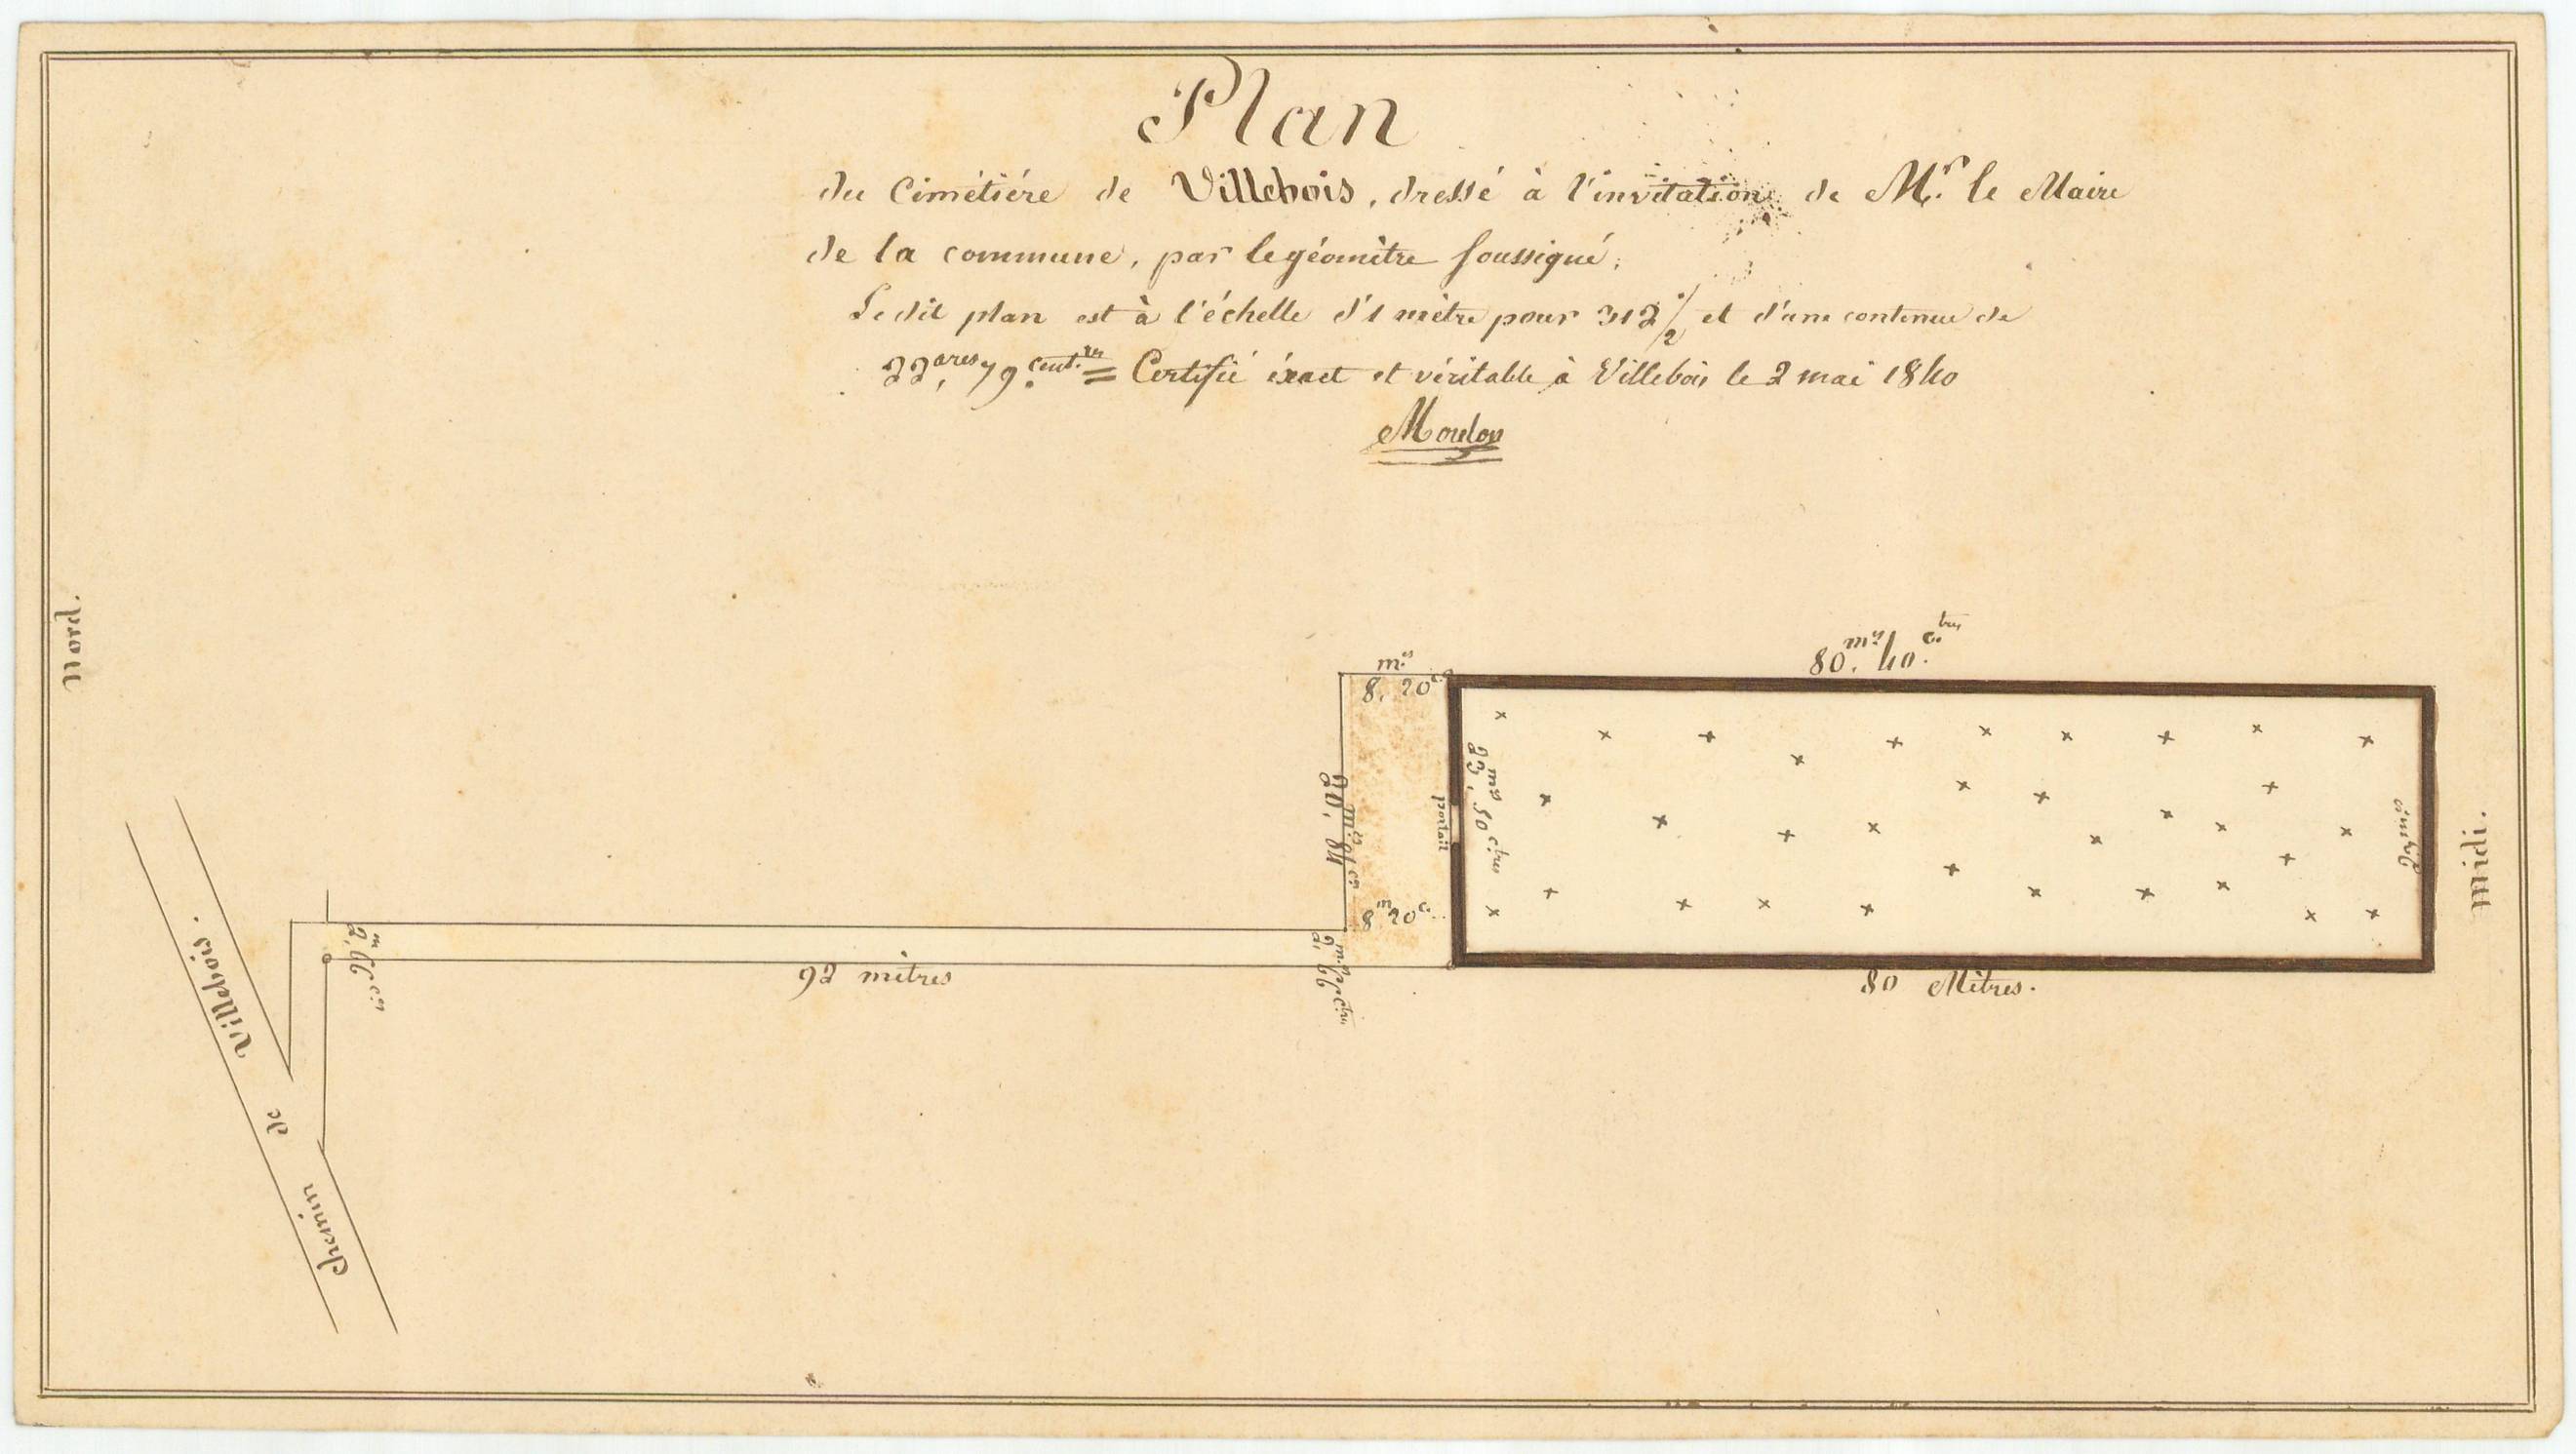 Plan
du Cimétiére de Villebois, dressé à l'invitation de M.r le Maire
de la commune, par le géomètre soussigné.
Le dit plan est à l'échelle d'1 mètre pour 312 1/2 et d'une contenue de
22,ares 79.cent.res = Certifié éxact et véritable à Villebois le 2 mai 1840
Moulon
Nord.
80.m.s 40.c.tres
m.s
8, 20c.
23,m.s 50 c.tres
portail
20,m.s 84 c.s
8m 20c.
23 m.s
Midi.
2,m 76 c.s
92 mètres
2,m.s 76 c.tres
80 Mètres.
Chemin de Villebois.